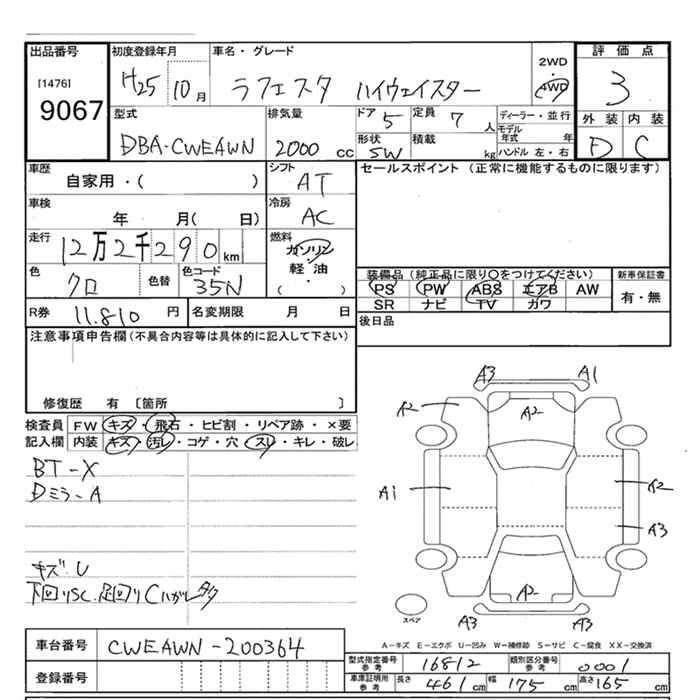 出品番号 初度登録年月 車名・グレード 2WD 評価点
[1476] H25 10月 ラフェスタ ハイウェイスター 4WD 3
9067
型式 排気量 ドア 5 定員 7人 ディーラー・並行 外装 内装
DBA-CWEAWN 2000cc 形状 5W 積載 kg モデル年式 年 D C
ハンドル 左・右
車歴 シフト セールスポイント (正常に機能するものに限ります)
自家用・( ) AT
車検 冷房
年 月( 日) AC
走行 燃料
12万2千290km ガソリン
軽油
(・)
色 色替 色コード 装備品 (純正品に限り○をつけてください) 新車保証書
クロ 35N PS PW ABS エアB AW 有・無
SR ナビ TV カワ
R券 11.810円 名変期限 月 日 後日品
注意事項申告欄 (不具合内容等は具体的に記入して下さい)
修復歴 有 〔箇所 〕
検査員 FW キズ・飛石・ヒビ割・リペア跡・×要
記入欄 内装 キズ・汚レ・コゲ・穴・スレ・キレ・破レ
BT-X
Dミラ-A
キズU
下回りSC.足回りCハガレ
A3 A1
A2 A2
A1 A2
A3
A2
A3 A3
スペア
A-キズ E-エクボ U-凹み W-補修跡 S-サビ C-腐食 XX-交換済
車台番号 CWEAWN-200364
型式指定番号 参考 16812 類別区分番号 参考 0001
登録番号 車庫証明用 参考 長さ 461cm 幅 175cm 高さ 165cm